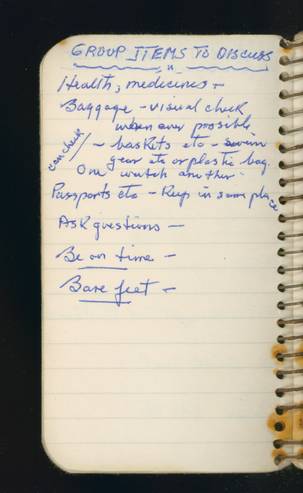 GROUP ITEMS TO DISCUSS
Health, medicines -
Baggage - visual check
when ever possible
can check / - baskits etc - swim
gear etc or plastic bag.
One watch another -
Passports etc - Keep in same place
Ask questions -
Be on time -
Bare feet -